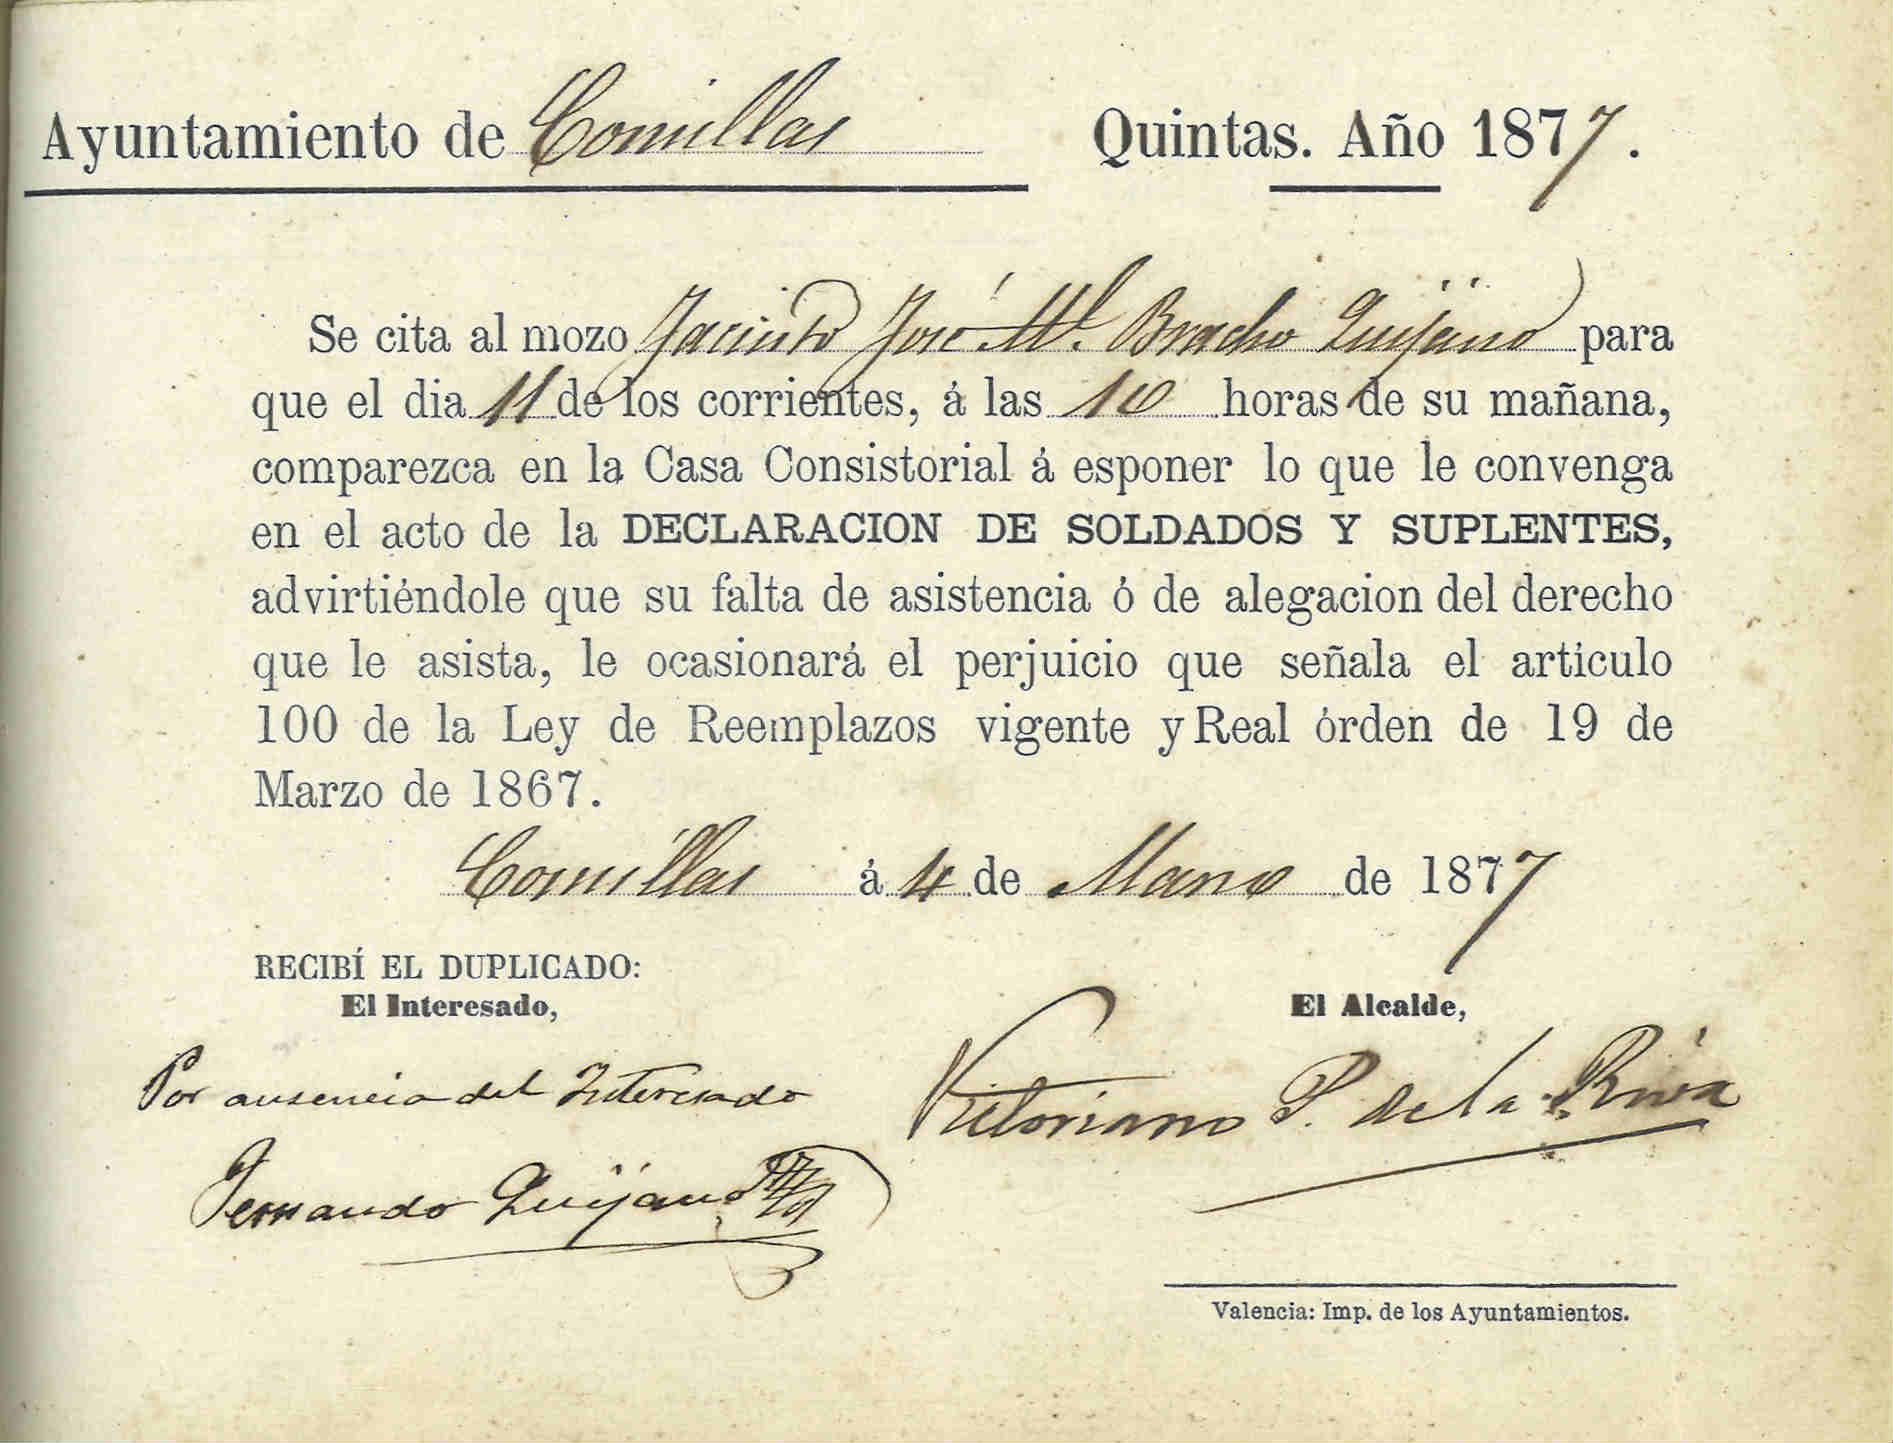 Ayuntamiento de Comillas Quintas. Año 1877.
Se cita al mozo Jacinto José M.ª Bracho Quijano para
que el dia 11 de los corrientes, á las 10 horas de su mañana,
comparezca en la Casa Consistorial á esponer lo que le convenga
en el acto de la DECLARACION DE SOLDADOS Y SUPLENTES,
advirtiéndole que su falta de asistencia ó de alegacion del derecho
que le asista, le ocasionará el perjuicio que señala el artículo
100 de la Ley de Reemplazos vigente y Real órden de 19 de
Marzo de 1867.
Comillas á 4 de Marzo de 1877
RECIBÍ EL DUPLICADO:
El Interesado, El Alcalde,
Por ausencia del Interesado Victoriano P. de la Riva
Fernando Quijano
Valencia: Imp. de los Ayuntamientos.